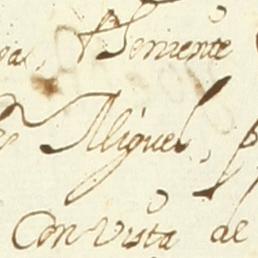 Teniente
Miguel,
Con Vista de